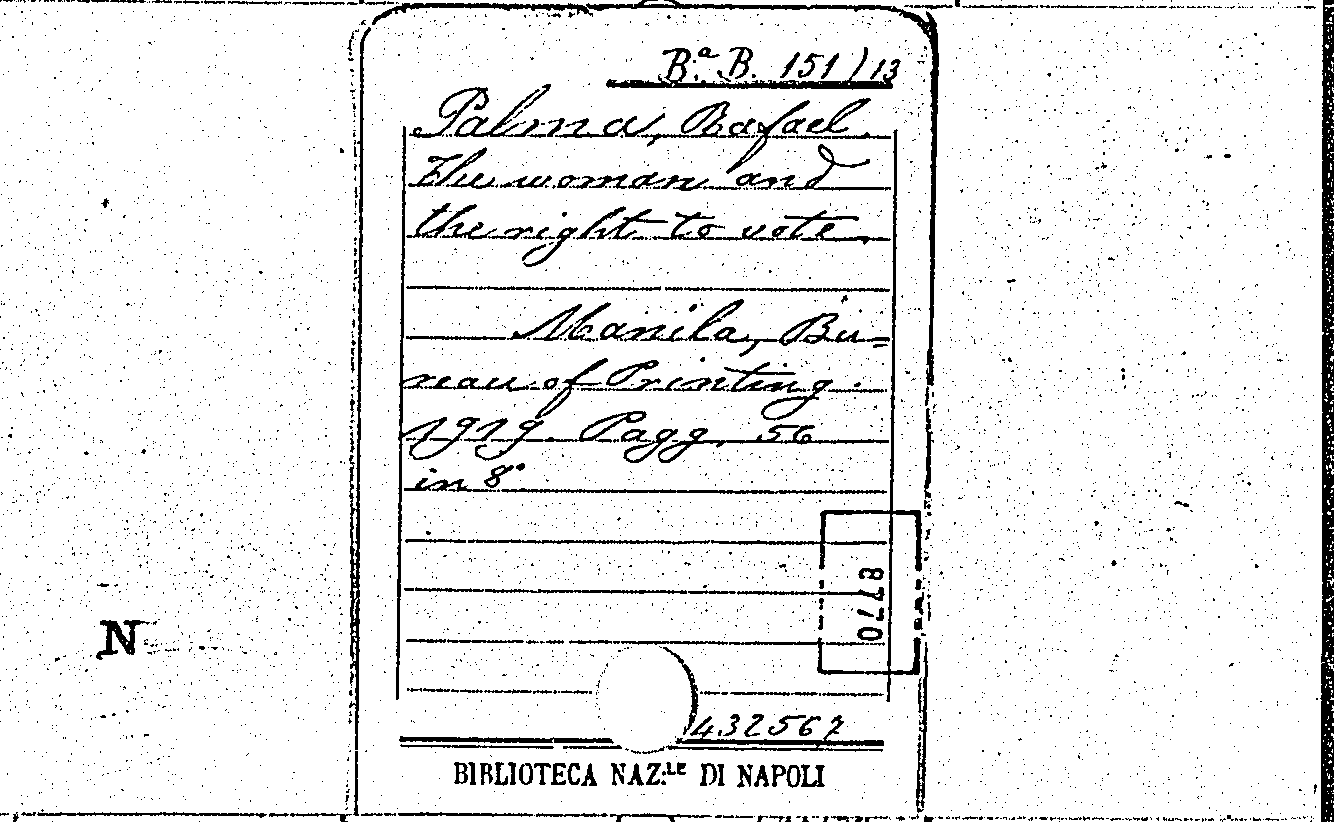 B.ª B. 151 / 13
Palma, Rafael.
The woman and
the right to vote.
Manila, Bu=
reau of Printing.
1919. Pagg. 56
in 8°
8770
N
432567
BIBLIOTECA NAZ.LE DI NAPOLI